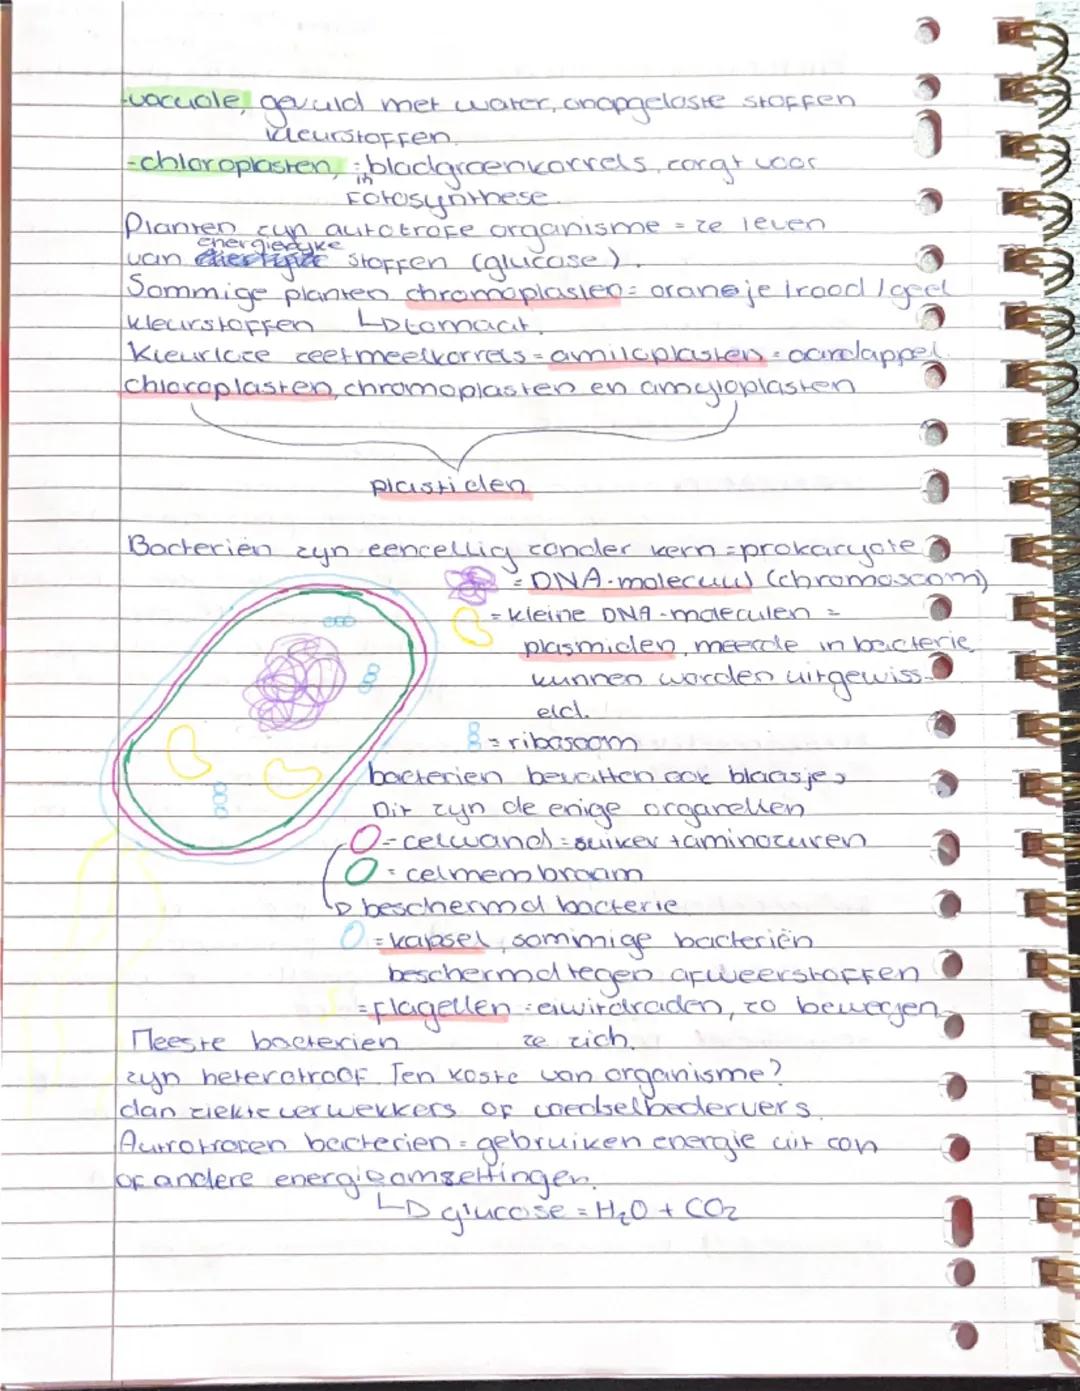 -vacuole, gevuld met water, onopgeloste stoffen
kleurstoffen.
-chloroplasten, = bladgroenkorrels, zorgt voor
in
Fotosynthese.
Planten zijn autotrofe organisme = ze leven
energierijke
van stoffen (glucose).
Sommige planten chromoplasten = oranje / rood / geel
kleurstoffen ↳ tomaat.
Kleurloze zeetmeelkorrels = amiloplasten = aardappel.
chloroplasten, chromoplasten en amyloplasten
plastiden
Bacteriën zijn eencellig zonder kern = prokaryote
= DNA-molecuul (chromosoom)
= kleine DNA-moleculen =
plasmiden, meerde in bacterie
kunnen worden uitgewiss-
eld.
= ribosoom
bacterien bevatten ook blaasjes
Dit zijn de enige organellen
= celwand = suiker + aminozuren
= celmembraam
↳ beschermd bacterie
= kapsel, sommige bacteriën
beschermd tegen afweerstoffen
= flagellen = eiwitdraden, zo bewegen
Meeste bacterien ze zich.
zijn heterotroof. Ten koste van organisme?
dan ziekteverwekkers of voedselbedervers.
Autotrofen bacterien = gebruiken energie uit zon
of andere energieomzettingen.
↳ glucose = H₂O + CO₂